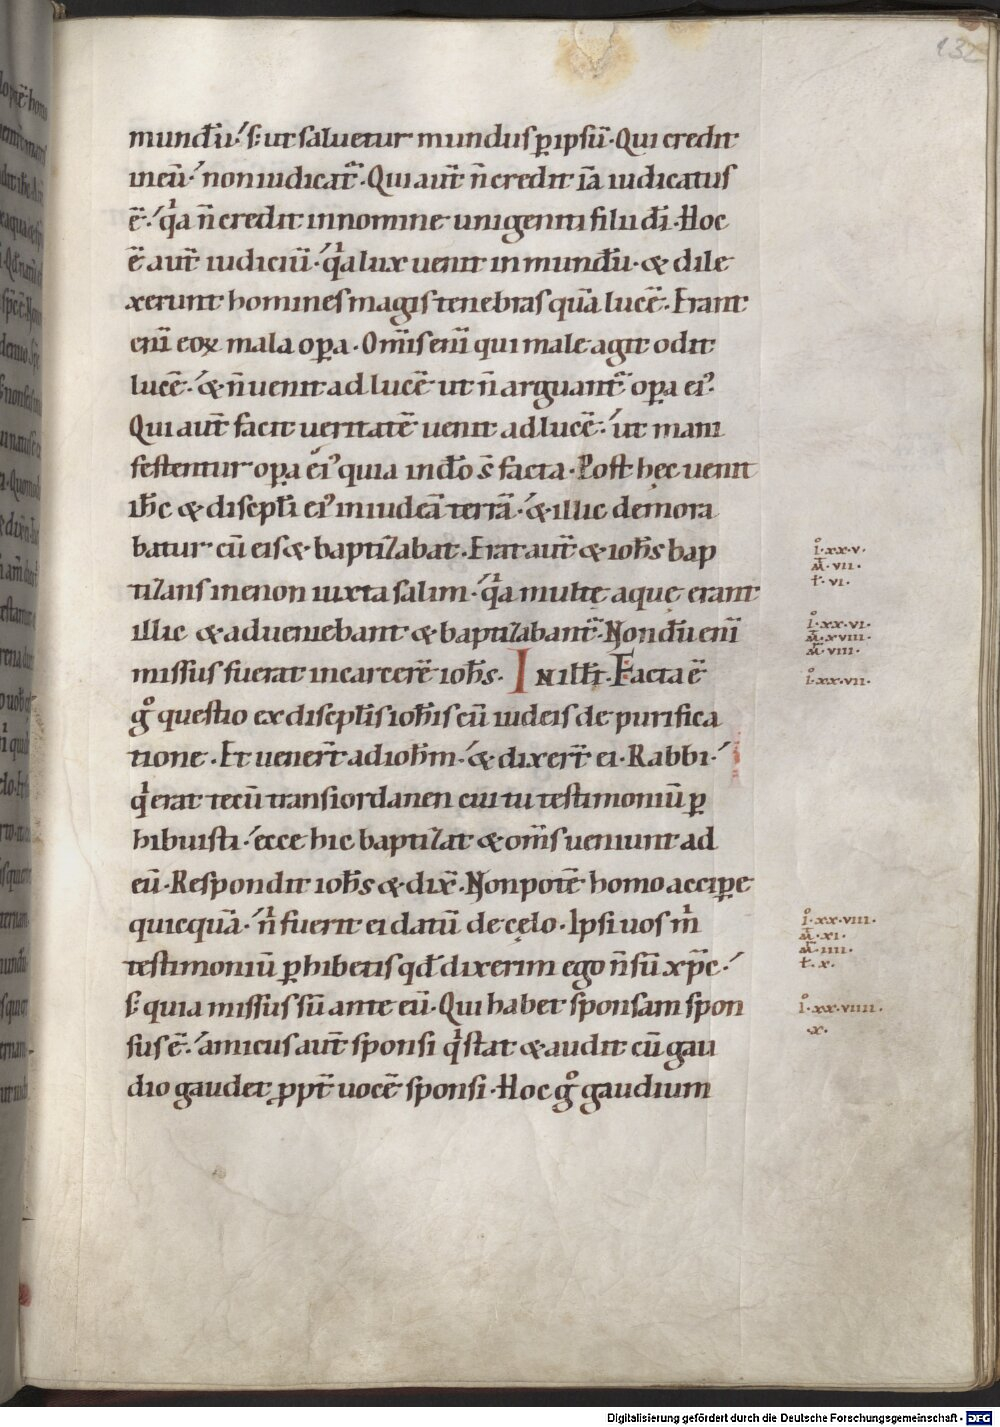 132
mundũ·ˊ s; ut saluetur mundus ꝑ ipsũ· Qui credit
in eũ·ˊ non iudicat᷑· Qui aut̄ ñ credit iã iudicatus
ẽ·ˊ qͥa ñ credit in nomine unigeniti filii dī· Hoc
ẽ aut̄ iudiciũ·ˊ qͥa lux uenit in mundũ· & dile
xerunt homines magis tenebras quã lucẽ· Erant
eni᷑ eoꝝ mala oꝑa· Om̄is eni᷑ qui male agit odit
lucẽ·ˊ & ñ uenit ad lucẽ ut ñ arguant᷑ oꝑa eiꝰ·
Qui aut̄ facit ueritatẽ uenit ad lucẽ·ˊ ut mani
festentur oꝑa eiꝰ quia in dō s̄ facta· Post hęc uenit
ih̄c & discipl̄i eiꝰ in iudeã terrã·ˊ & illic demora
batur cũ eis & baptizabat· Erat aut̄ & ioh̄s bap
tizans in enon iuxta salim·ˊ qͥa multę aquę erant
illic & adueniebant & baptizabant᷑· Nondũ eni᷑
missus fuerat in carcerẽ ioh̄s· In ill̄ t̄· Facta ẽ
gͦ questio ex discipl̄is ioh̄is cũ iudeis de purifica
tione· Et uener̄t ad ioh̄m·ˊ & dixer̄t ei· Rabbi·ˊ
qͥ erat tecũ trans iordanen cui tu testimoniũ ꝑ
hibuisti·ˊ ecce hic baptizat & om̄s ueniunt ad
eũ· Respondit ioh̄s & dix̄· Non potẽ homo acciꝑe
quicquã·ˊ nͥ fuerit ei datũ de cęlo· Ipsi uos mͥ
testimoniũ ꝑhibetis qd̄ dixerim ego ñ sũ xp̄c·ˊ
s; quia missus sũ ante eũ· Qui habet sponsam spon
sus ẽ·ˊ amicus aut̄ sponsi qͥ stat & audit eũ gau
dio gaudet ꝓpt̄ uocẽ sponsi· Hoc gͦ gaudium
ī·xx·v·
m̄·vii·
l̄·vi·
ī·xx·vi·
m̄·xviii·
m̄·viii·
ī·xx·vii·
ī·xx·viii·
m̄·xi·
m̄·iiii·
l̄·x·
ī·xx·viiii·
·x·
Digitalisierung gefördert durch die Deutsche Forschungsgemeinschaft - DFG